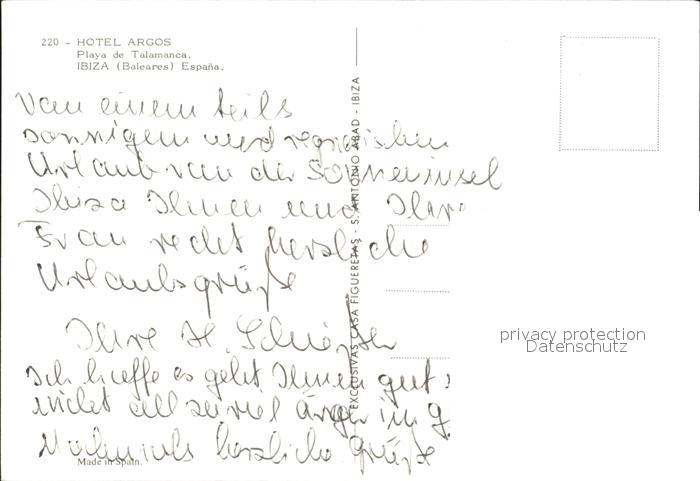 220 - HOTEL ARGOS
Playa de Talamanca.
IBIZA (Baleares) España.
Von einem teils
sonnigem und regnerischen
Urlaub von der Sonneninsel
Ibiza Ihnen und Ihrer
Frau recht herzliche
Urlaubsgrüße
Ihre H.
Ich hoffe es geht Ihnen gut
nicht all zu viel ärger in g
Nochmals herzliche grüße
Made in Spain.
EXCLUSIVAS CASA FIGUERETAS - S. ANTONIO ABAD - IBIZA
privacy protection
Datenschutz